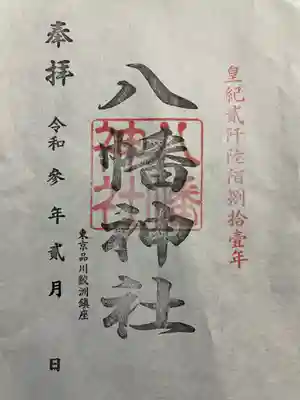 皇紀貳阡陸佰捌拾壹年
八幡神社
八幡神社
東京品川鮫洲鎮座
奉拝
令和参年貳月 日